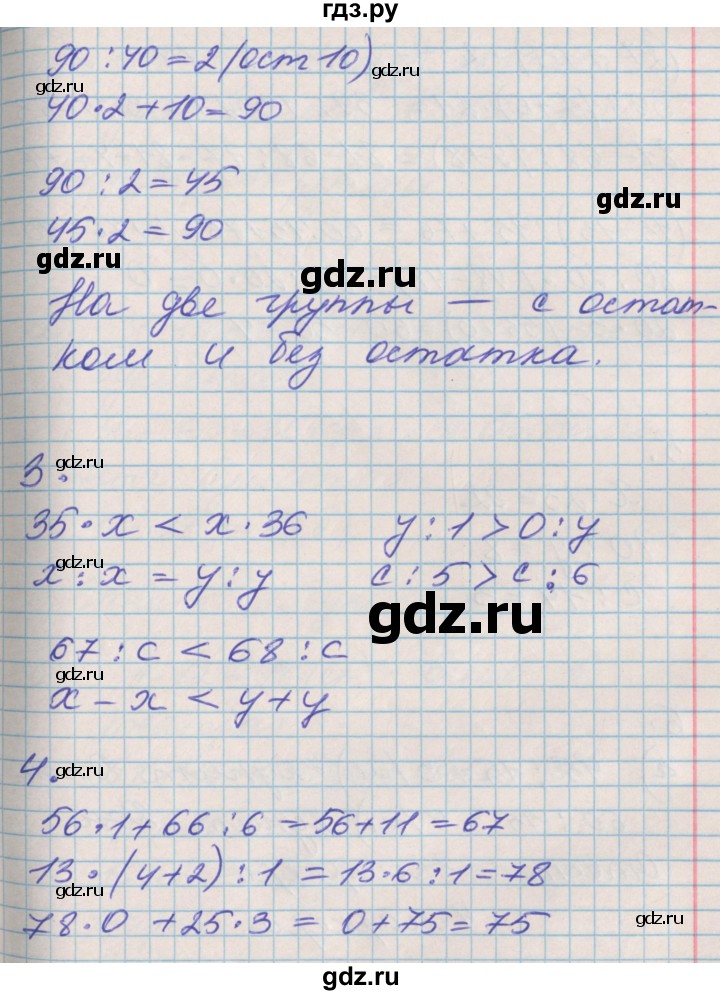 гдз.ру
90 : 40 = 2 (ост 10)
gdz.ru
gdz.ru
40 · 2 + 10 = 90
90 : 2 = 45
gdz.ru
45 · 2 = 90
gdz.ru
gdz.ru
На две группы — с остат-
ком и без остатка.
gdz.ru
3.
35 · x < x · 36    y : 1 > 0 : y
gdz.ru
x : x = y : y    c : 5 > c : 6
gdz.ru
67 : c < 68 : c
gdz.ru
x - x < y + y
4.
gdz.ru
56 · 1 + 66 : 6 = 56 + 11 = 67
13 · (4 + 2) : 1 = 13 · 6 : 1 = 78
gdz.ru
78 · 0 + 25 · 3 = 0 + 75 = 75
gdz.ru
gdz.ru